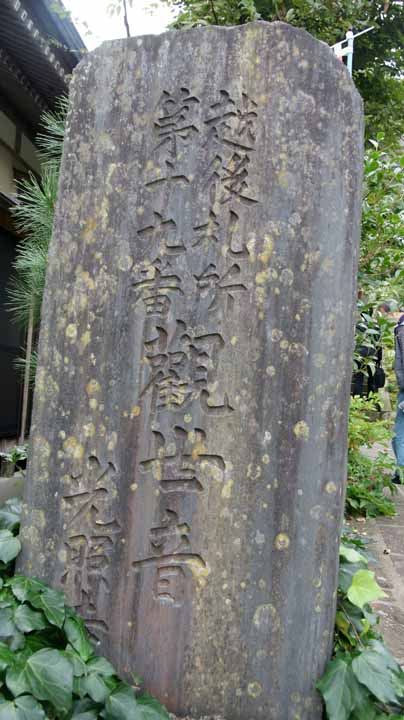 越後札所
第十九番
觀世音
光照寺